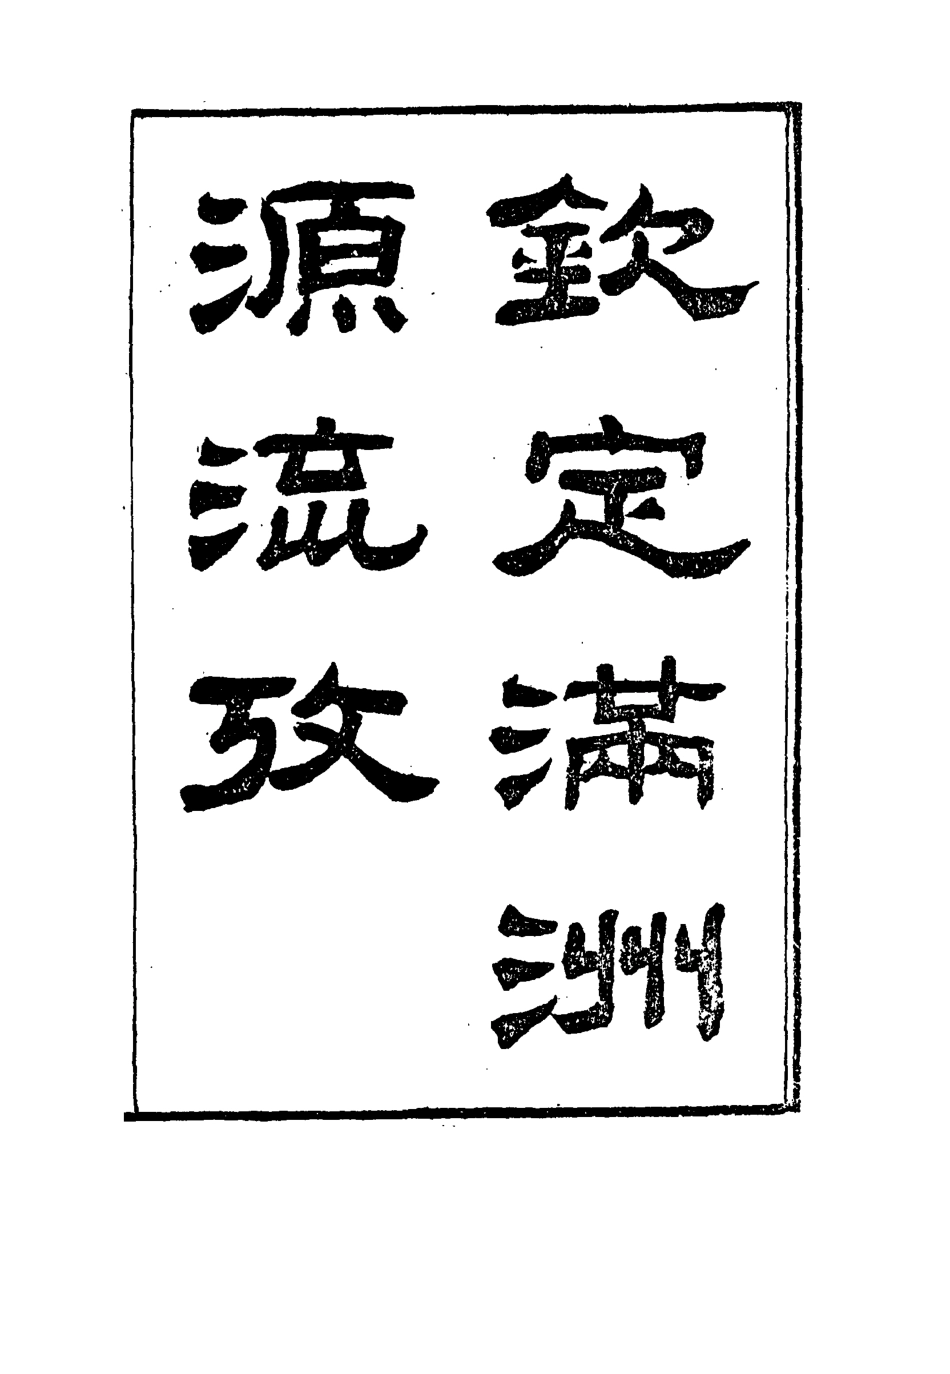 欽定滿洲
源流攷